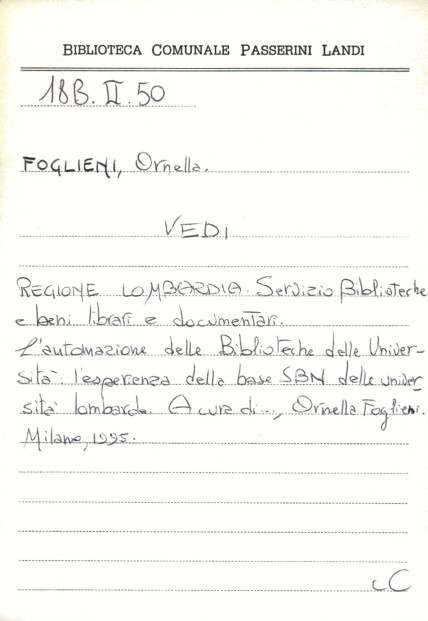 BIBLIOTECA COMUNALE PASSERINI LANDI
18B. II. 50
FOGLIENI, Ornella.
VEDI
REGIONE LOMBARDIA. Servizio Biblioteche
e beni librari e documentari.
L'automazione delle Biblioteche delle Univer-
sità: l'esperienza della base SBN delle univer
sità lombarde. A cura di..., Ornella Foglieni.
Milano, 1995.